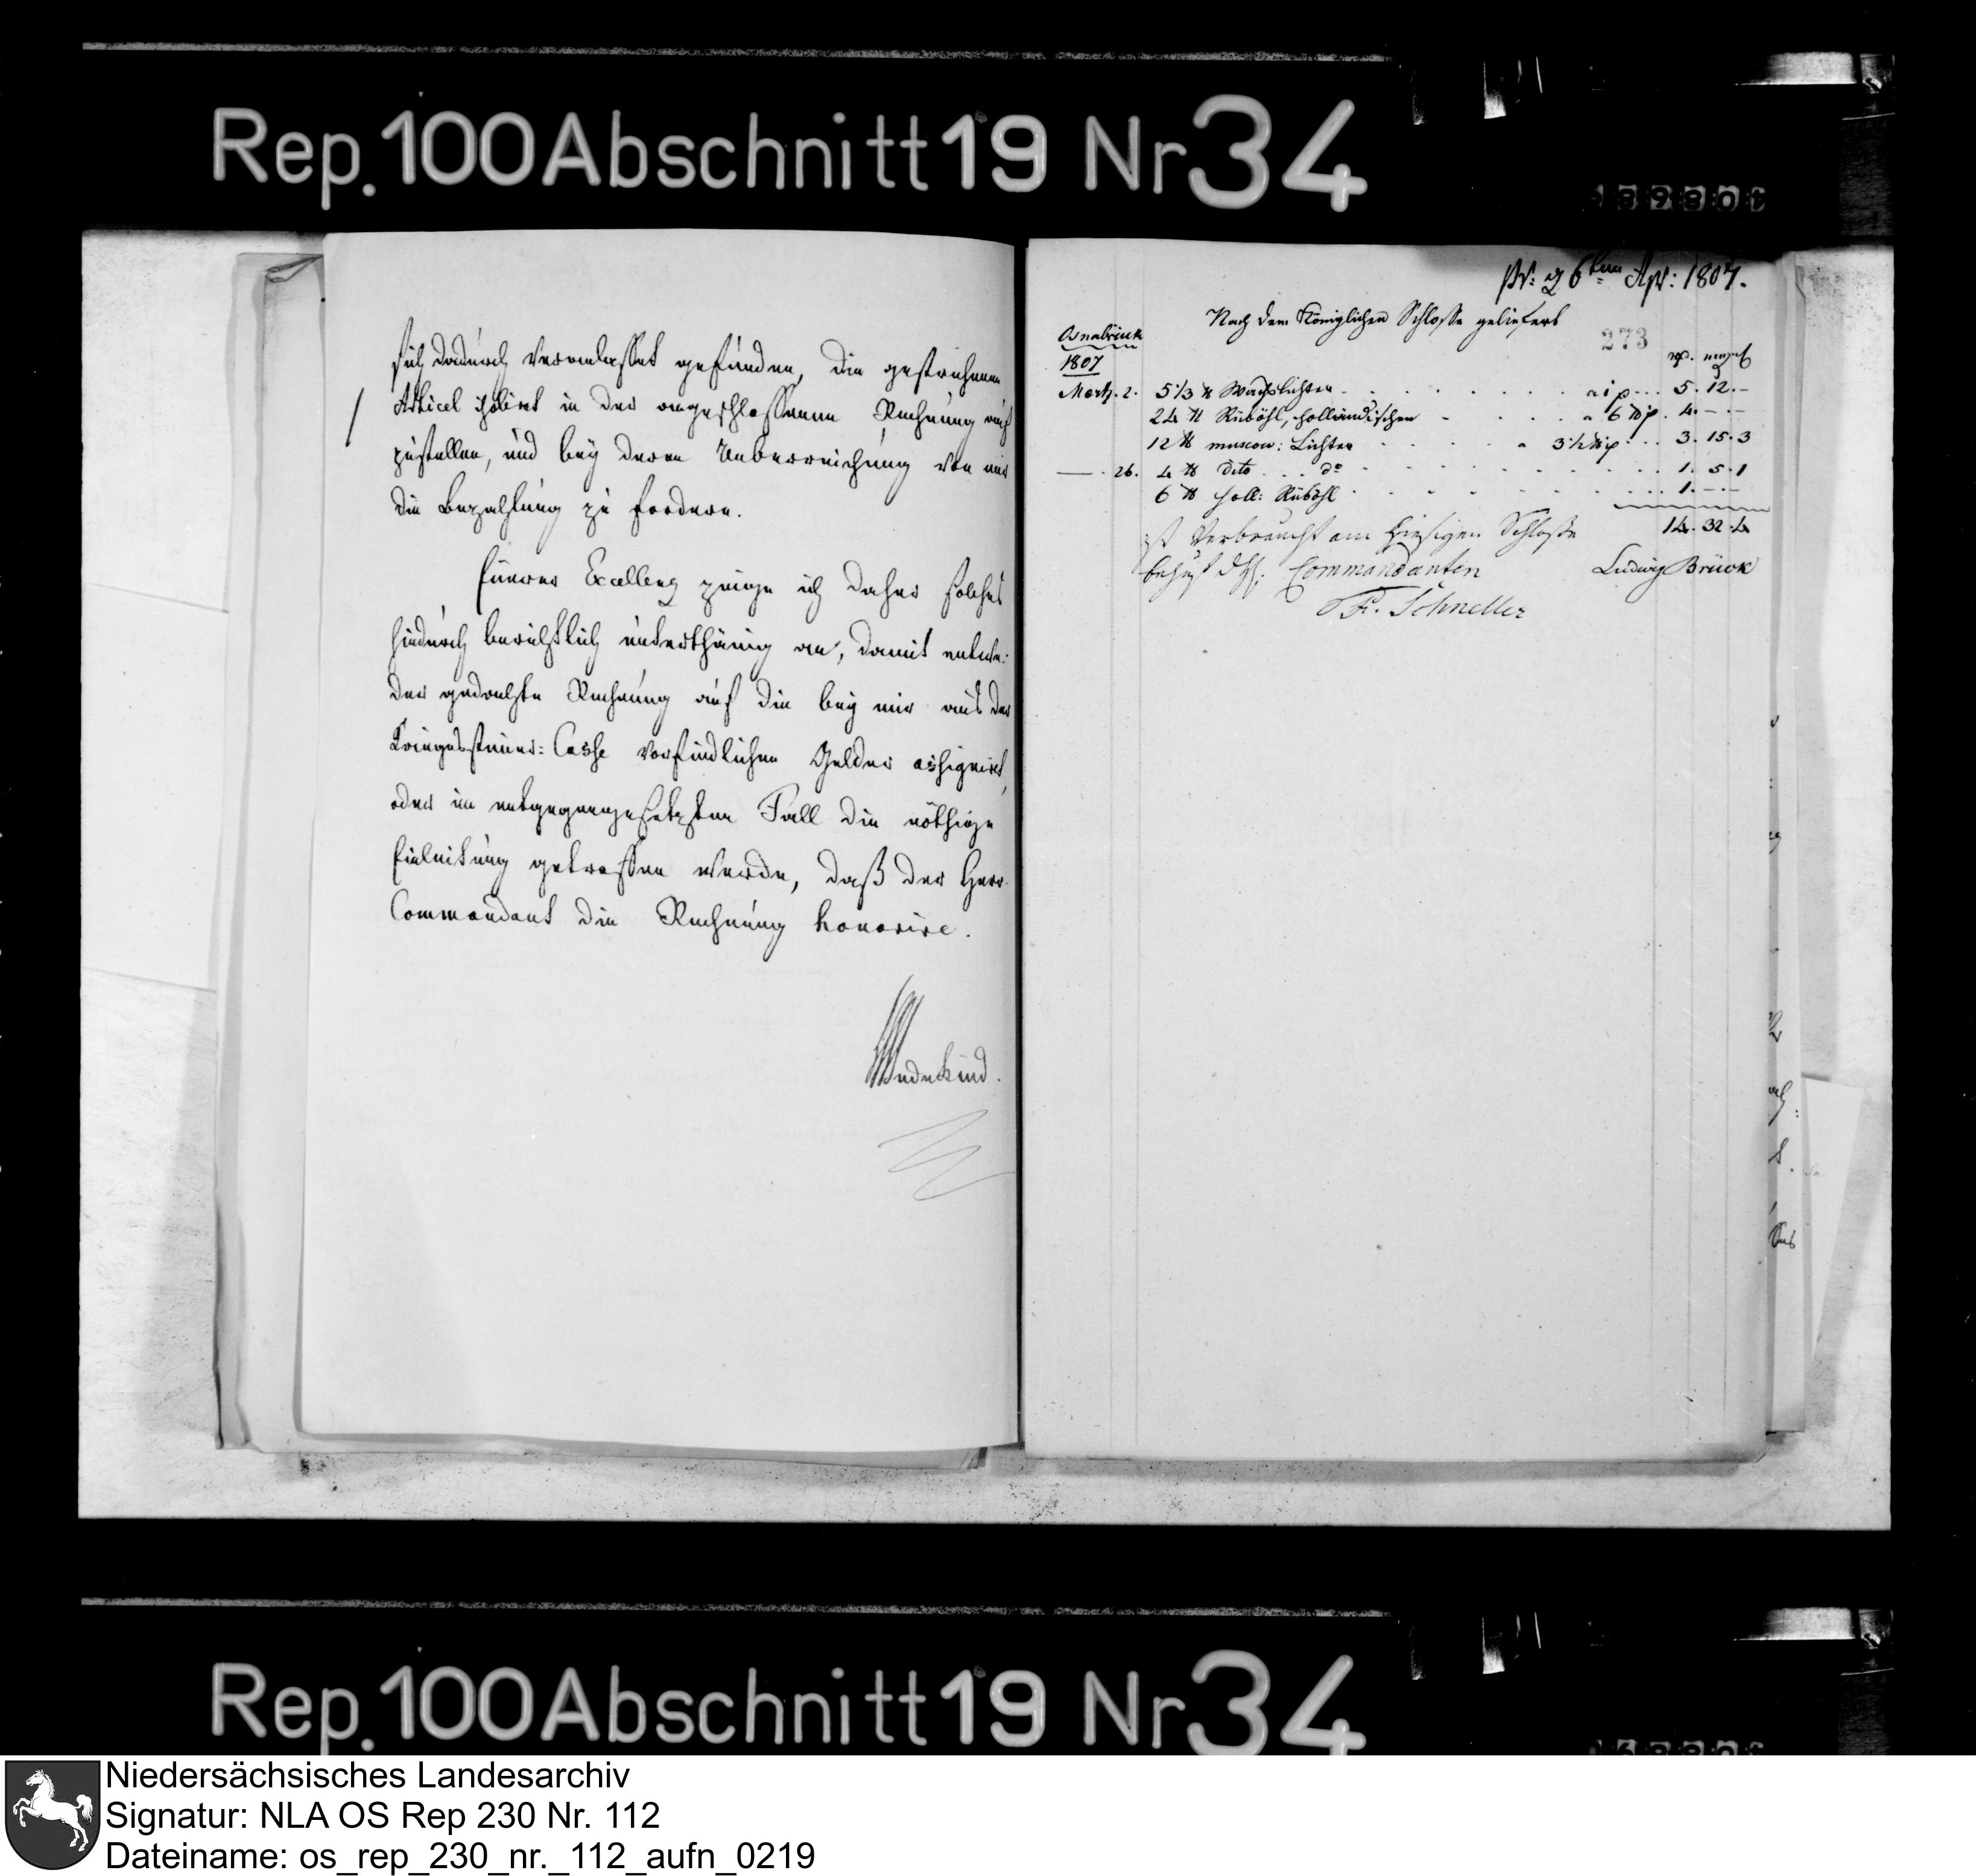 Rep. 100 Abschnitt 19 Nr 34
sich dadurch veranlasset gefunden, die gestrichenen
Articel isolirt in der angeschlossenen Rechnung auf
zustellen, und bey deren Ueberreichung von mir
die Bezahlung zu fordern.
Euerer Excellenz zeige ich daher solches
hiedurch berichtlich unterthänig an, damit entwe:
der gedachte Rechnung auf die bey mir aus der
Kriegessteuer: Casse vorfindlichen Gelder assignirt,
oder im entgegengesetzten Fall die nöthige
Einleitung getroffen werde, daß der Herr
Commandant die Rechnung honorire.
Wedekind.
pr: 26ten Apr: 1807.
Nach dem Königlichen Schlosse geliefert
273
Osnabrück
1807
Mertz. 2. 5 1/3 ℔ Wachslichter a 1 p 5. 12. -
24 ℔ Rüböhl, holländischen a 6 ℔ p. 4. - . -
12 ℔ muscow: Lichter a 3 1/2 ℔ p 3. 15. 3
— 26. 4 ℔ dito do 1. 5. 1
6 ℔ holl: Rüböhl 1. - . -
14. 32. 4
ist Verbraucht am hiesigen Schlosse
behuf Commandanten
Ludwig Brück
Fr. Schneller
Rep. 100 Abschnitt 19 Nr 34
Niedersächsisches Landesarchiv
Signatur: NLA OS Rep 230 Nr. 112
Dateiname: os_rep_230_nr._112_aufn_0219